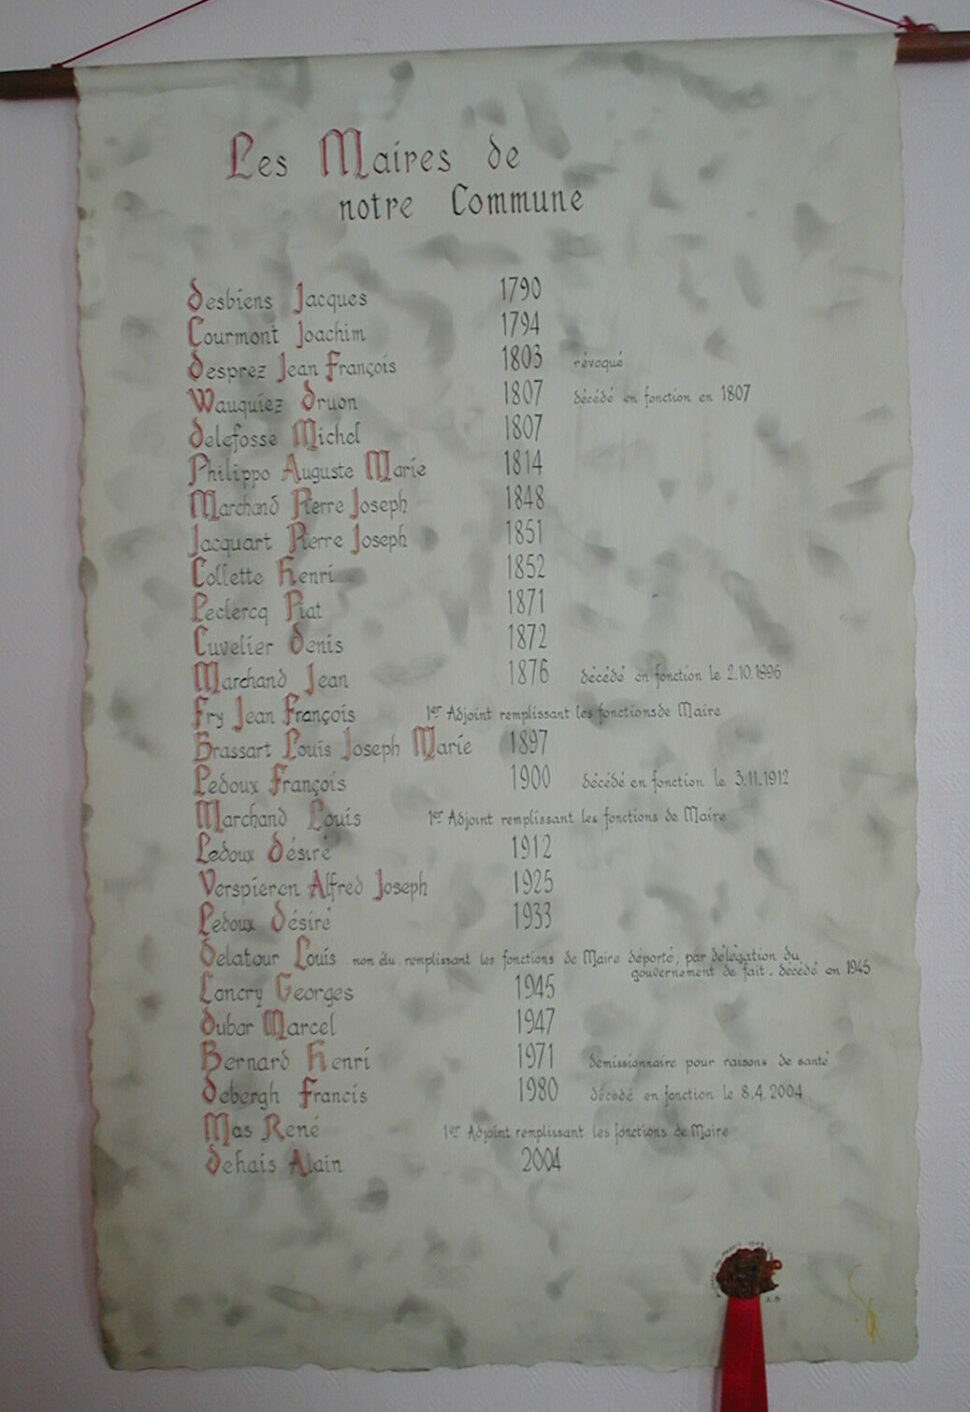 Les Maires de
notre Commune
Desbiens Jacques 1790
Courmont Joachim 1794
Desprez Jean François 1803 révoqué
Wauquiez Druon 1807 décédé en fonction en 1807
Delefosse Michel 1807
Philippo Auguste Marie 1814
Marchand Pierre Joseph 1848
Jacquart Pierre Joseph 1851
Collette Henri 1852
Leclercq Piat 1871
Cuvelier Denis 1872
Marchand Jean 1876 décédé en fonction le 2.10.1896
Fry Jean François 1er Adjoint remplissant les fonctions de Maire
Brassart Louis Joseph Marie 1897
Ledoux François 1900 décédé en fonction le 3.11.1912
Marchand Louis 1er Adjoint remplissant les fonctions de Maire
Ledoux Désiré 1912
Verspieren Alfred Joseph 1925
Ledoux Désiré 1933
Delatour Louis non élu. remplissant les fonctions de Maire déporté, par délégation du
gouvernement de fait. décédé en 1945
Lancry Georges 1945
Dubar Marcel 1947
Bernard Henri 1971 démissionnaire pour raisons de santé
Debergh Francis 1980 décédé en fonction le 8.4.2004
Mas René 1er Adjoint remplissant les fonctions de Maire
Dehais Alain 2004